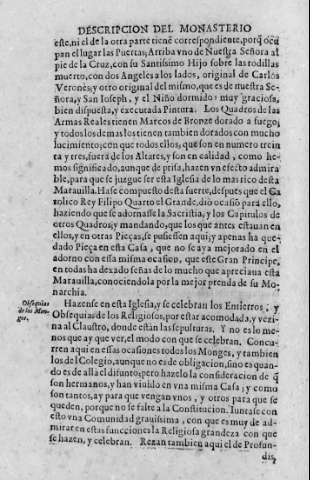 DESCRIPCION DEL MONASTERIO
este, ni el de la otra parte tienē correspondiente, porq̄ ocu
pan el lugar las Puertas; Arriba vno de Nuestra Señora al
pie de la Cruz, con su Santissimo Hijo sobre las rodillas
muerto, con dos Angeles a los lados, original de Carlos
Verones; y otro original del mismo, que es de nuestra Se-
ñora, y San Ioseph, y el Niño dormido: muy graciosa,
bien dispuesta, y executada Pintura. Los Quadros de las
Armas Reales tienen Marcos de Bronze dorado a fuego,
y todos los demas los tienen tambien dorados con mucho
lucimiento; con que todos ellos, que son en numero trein
ta y tres, fuera de los Altares, y son en calidad, como he-
mos significado, aunque de prisa, hazen vn efecto admira
ble, para que se juzgue ser esta Iglesia de lo mas rico desta
Marauilla. Hase compuesto desta suerte, despues que el Ca
tolico Rey Filipo Quarto el Grande, diò ocasiō para ello,
haziendo que se adornasse la Sacristia, y los Capitulos de
otros Quadros; y mandando, que los que antes estauan en
ellos, y en otras Pieças, se pusiessen aqui; y apenas ha que-
dado Pieça en esta Casa, que no se aya mejorado en el
adorno con essa misma ocasion, que este Gran Principe,
en todas ha dexado señas de lo mucho que apreciaua esta
Marauilla, conociendola por la mejor prenda de su Mo-
narchia.
Obsequias
de los Mon-
ges.
Hazense en esta Iglesia, y se celebran los Entierros, y
Obsequias de los Religiosos, por estar acomodada, y vezi-
na al Claustro, donde están las sepulturas. Y no es lo me-
nos que ay que ver, el modo con que se celebran. Concu-
rren aqui en essas ocasiones todos los Monges, y tambien
los del Colegio, aunque no es de obligacion, sino es quan-
do es de alla el difunto; pero hazelo la consideracion de q̄
son hermanos, y han viuido en vna misma Casa; y como
son tantos, ay para que vengan vnos, y otros para que se
queden, porque no se falte a la Constitucion. Iuntase con
esto vna Comunidad grauissima, con que es muy de ad-
mirar en estas funcciones la Religiosa grandeza con que
se hazen, y celebran. Rezan tambien aqui el de Profun-
dis,